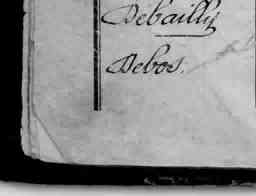 Debailly
Debos.